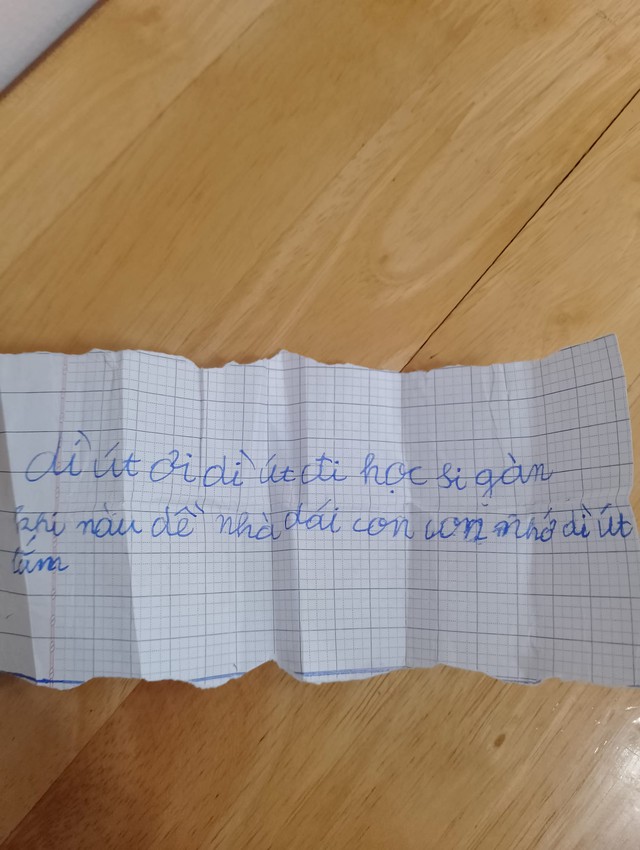 dì út ơi dì út đi học si gàn
khi nàu dề nhà dới con con nhớ dì út
lúm